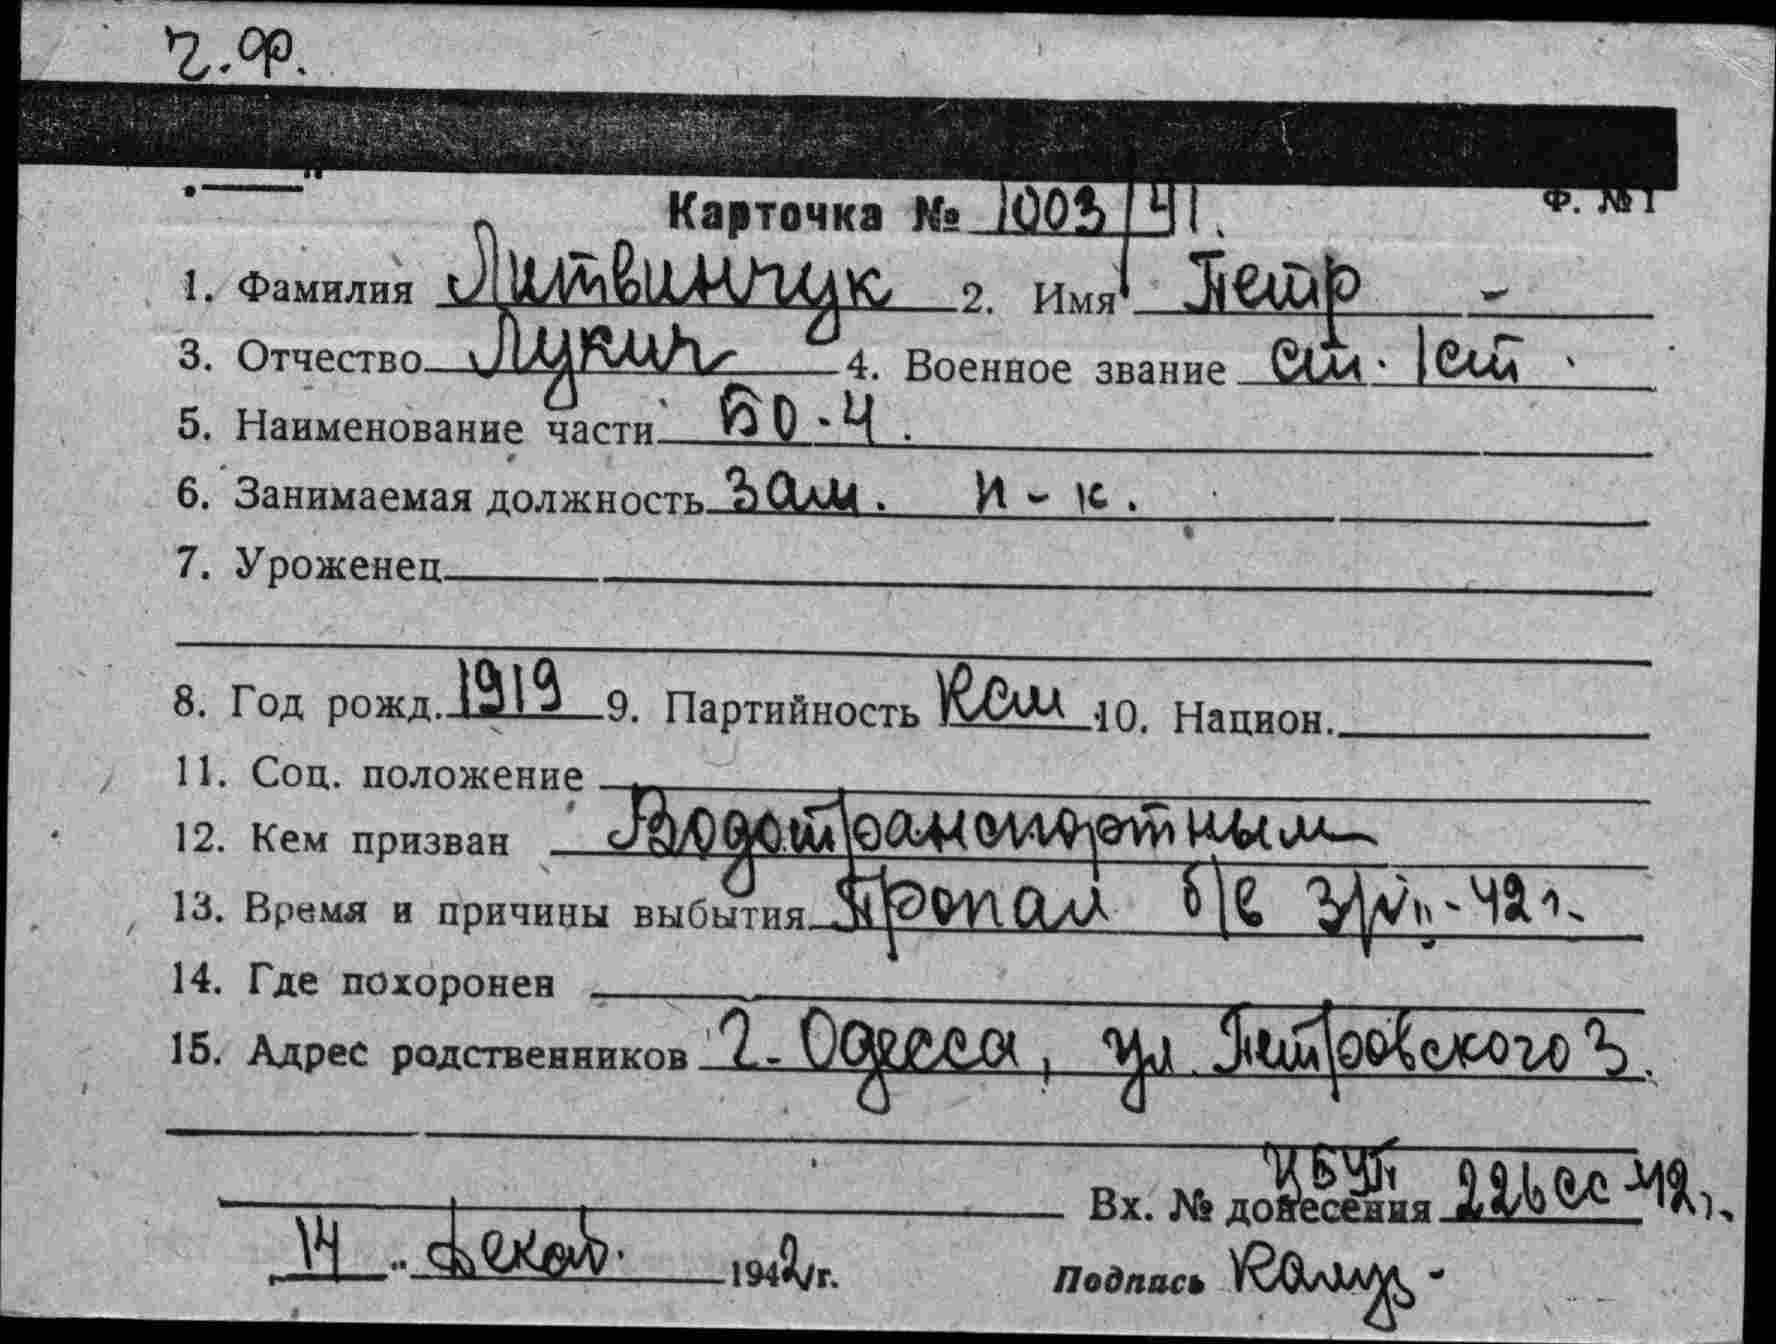 ч.ф.
Ф. №1
Карточка № 1003/41.
1. Фамилия Литвинчук 2. Имя Петр -
3. Отчество Лукич 4. Военное звание ст. 1 ст.
5. Наименование части БО-4.
6. Занимаемая должность зам. к-к.
7. Уроженец
8. Год рожд. 1919 9. Партийность Ксм 10. Национ.
11. Соц. положение
12. Кем призван Водотранспортным
13. Время и причины выбытия Пропал б/в 3/VII-42 г.
14. Где похоронен
15. Адрес родственников г. Одесса, ул. Петровского 3.
Вх. № донесения 226сс-42г.
14 декаб. 1942 г.
Подпись